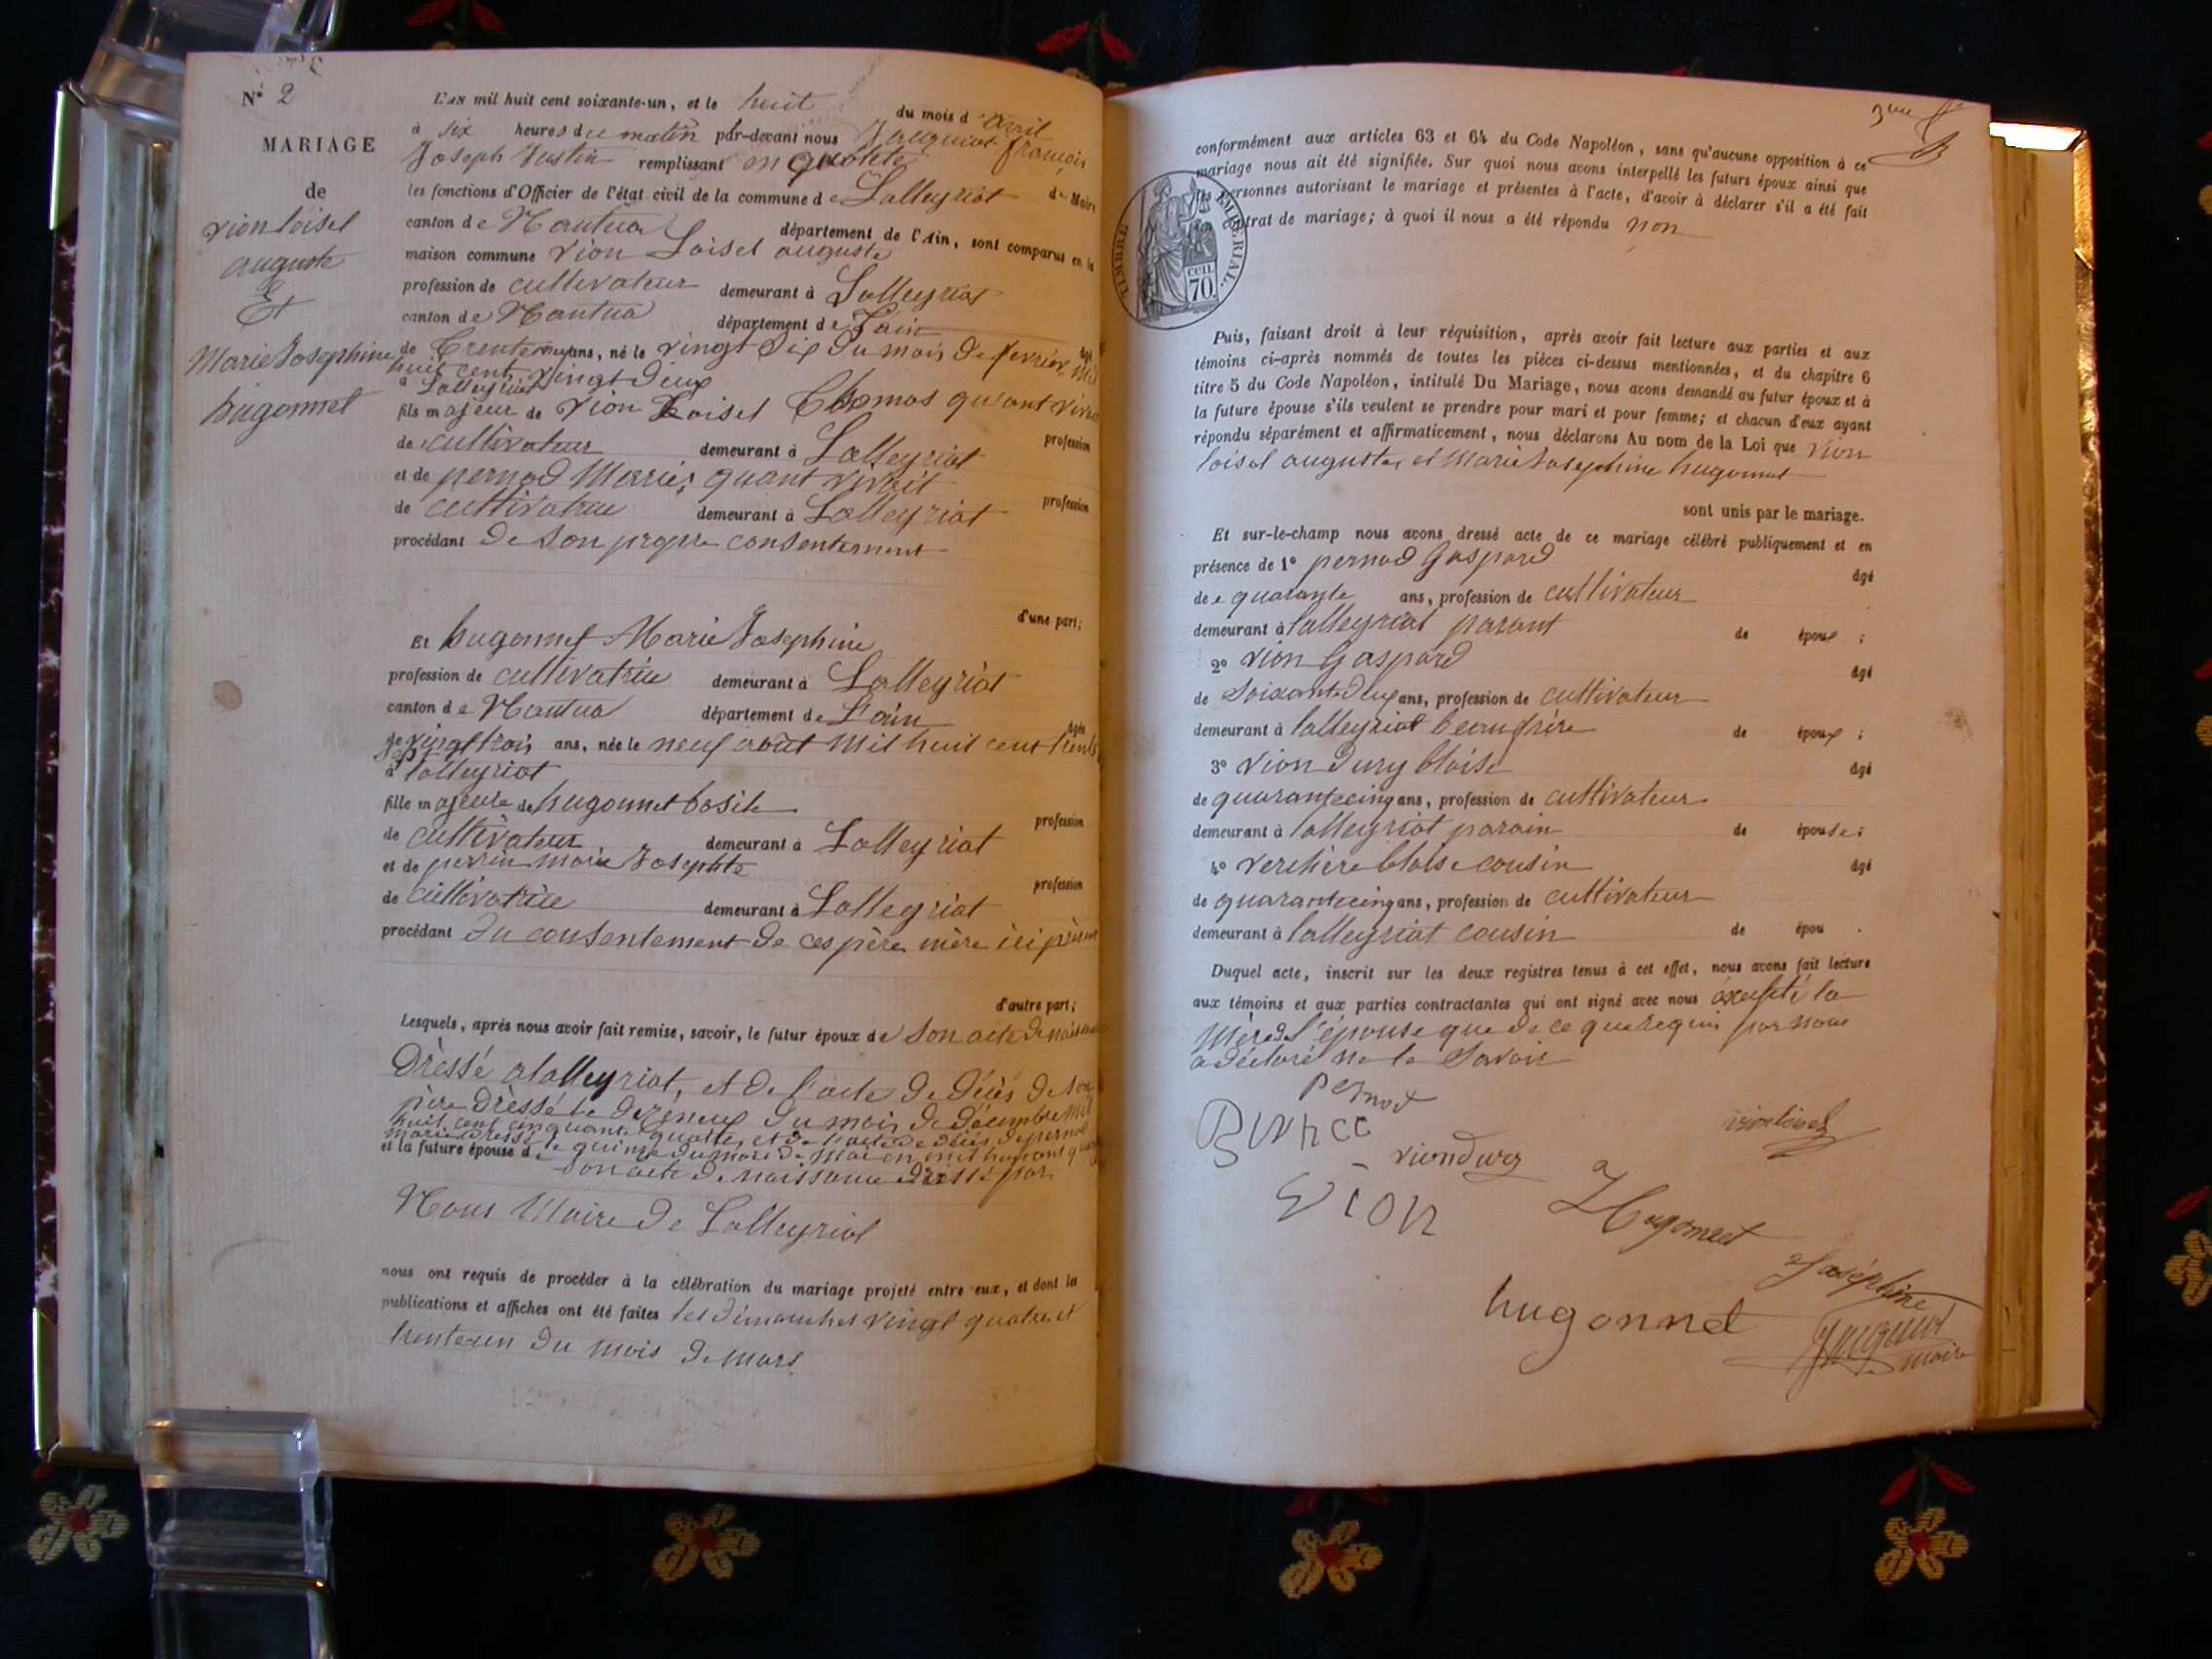 N° 2
MARIAGE
de
vion loisel
auguste
Et
Marie Josephine
hugonnet
L'an mil huit cent soixante-un, et le huit du mois d'avril
à six heures du matin par-devant nous Jauquiot françois
Joseph Justin remplissant en qualité de Maire
les fonctions d'Officier de l'état civil de la commune de Lalleyriat
canton de Nantua département de l'Ain, sont comparus en la
maison commune vion Loisel auguste
profession de cultivateur demeurant à Lalleyriat
canton de Nantua département de L'ain âgé
de trente neuf ans, né le vingt six du mois de fevrier mil
huit cent vingt deux
à Lalleyriat
fils majeur de vion Loisel Thomas quant vivait profession
de cultivateur demeurant à Lalleyriat
et de pernod Marie; quant vivait profession
de cultivatrice demeurant à Lalleyriat
procédant de son propre consentement
d'une part;
Et hugonnet Marie Josephine
profession de cultivatrice demeurant à Lalleyriat
canton de Nantua département de L'ain âgée
de vingt trois ans, née le neuf août mil huit cent trente
sept
à lalleyriat
fille majeure de hugonnet basile profession
de cultivateur demeurant à Lalleyriat
et de perrin marie Josephte profession
de cultivatrice demeurant à Lalleyriat
procédant du consentement de ces père mère ici présent
d'autre part;
Lesquels, après nous avoir fait remise, savoir, le futur époux de son acte de naissance
Dressé a lalleyriat, et de l'acte de décès de son
père Dressé le dizeneuf du mois de décembre mil
huit cent cinquante quatre, et de l'acte de décès de pernod
marie dressé le quinze du mois de
et la future épouse de son acte de naissance dressé par
Nous Maire de Lalleyriat
nous ont requis de procéder à la célébration du mariage projeté entre eux, et dont les
publications et affiches ont été faites les dimanches vingt quatre et
trente-un du mois de mars
3me
conformément aux articles 63 et 64 du Code Napoléon, sans qu'aucune opposition à ce
mariage nous ait été signifiée. Sur quoi nous avons interpellé les futurs époux ainsi que
les personnes autorisant le mariage et présentes à l'acte, d'avoir à déclarer s'il a été fait
un contrat de mariage; à quoi il nous a été répondu non
TIMBRE IMPÉRIAL
CEN.
70.
Puis, faisant droit à leur réquisition, après avoir fait lecture aux parties et aux
témoins ci-après nommés de toutes les pièces ci-dessus mentionnées, et du chapitre 6
titre 5 du Code Napoléon, intitulé Du Mariage, nous avons demandé au futur époux et à
la future épouse s'ils veulent se prendre pour mari et pour femme; et chacun d'eux ayant
répondu séparément et affirmativement, nous déclarons Au nom de la Loi que vion
loisel auguste, et Marie Josephine hugonnet
sont unis par le mariage.
Et sur-le-champ nous avons dressé acte de ce mariage célébré publiquement et en
présence de 1° pernod Gaspard âgé
de quarante ans, profession de cultivateur
demeurant à lalleyriat parant de époux ;
2° vion Gaspard âgé
de soixante deux ans, profession de cultivateur
demeurant à lalleyriat beaufrère de époux ;
3° vion Dury blaise âgé
de quarantecinq ans, profession de cultivateur
demeurant à lalleyriat parain de épouse;
4° verchère blaise cousin âgé
de quarantecinq ans, profession de cultivateur
demeurant à lalleyriat cousin de épou .
Duquel acte, inscrit sur les deux registres tenus à cet effet, nous avons fait lecture
aux témoins et aux parties contractantes qui ont signé avec nous éxcepté la
Mère de l'épouse que de ce que requis par nous
a déclaré ne le savoir
Pernod
vionloisel
vion Dury
vion
Hugonnet
Joséphine
hugonnet
Jauquiot
maire